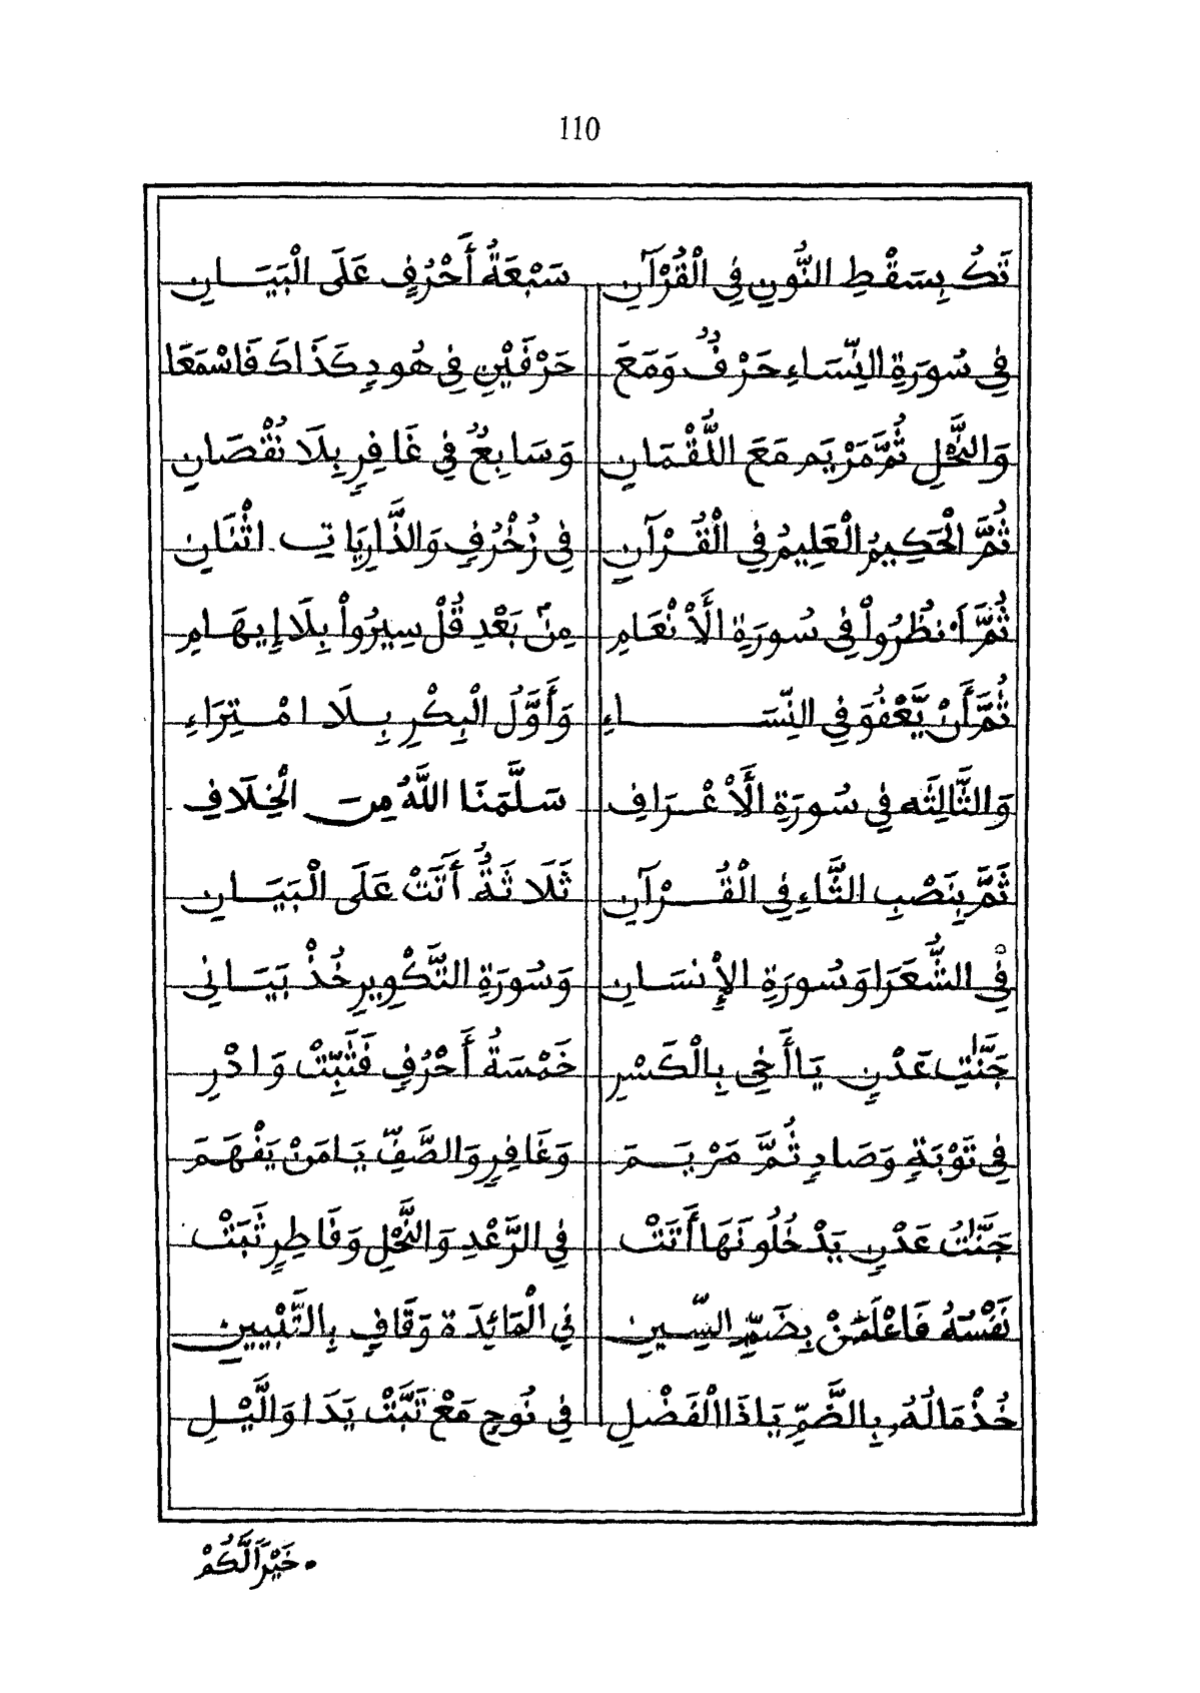 110
تَكُ بِسَقْطِ النُّونِ فِي الْقُرْآنِ سَبْعَةُ أَحْرُفٍ عَلَى الْبَيَـانِ
فِي سُورَةِ النِّسَاءِ حَرْفٌ وَمَعَ حَرْفَيْنِ فِي هُودٍ كَذَاكَ فَاسْمَعَا
وَالنَّحْلِ ثُمَّ مَرْيَمٍ مَعَ اللُّقْمَانِ وَسَابِعٌ فِي غَافِرٍ بِلَا نُقْصَانِ
ثُمَّ الْحَكِيمُ الْعَلِيمُ فِي الْقُـرْآنِ فِي زُخْرُفٍ وَالذَّارِيَاتِ اثْنَانِ
ثُمَّ اَنْظُرُواْ فِي سُورَةِ الَأنْعَامِ مِنْ بَعْدِ قُلْ سِيرُواْ بِلَا إِيهَـامِ
ثُمَّ أَنْ يَّعْفُوَ فِي النِّسَـاءِ وَأَوَّلُ الْبِكْرِ بِـلَا امْـتِرَاءِ
وَالثَّالِثَه فِي سُورَةِ الَأعْـرَافِ سَلَّمَنَا اللَّهُ مِنَ الْخِلَافِ
ثُمَّ بِنَصْبِ التَّاءِ فِي الْقُـرْآنِ ثَلَاثَةٌ أَتَتْ عَلَى الْبَيَـانِ
فِي الشُّعَرَا وَسُورَةِ الإِنسَـانِ وَسُورَةِ التَّكْوِيرِ خُذْ بَيَـانِي
جَنَّٰتِ عَدْنٍ يَا أَخِي بِالْكَسْرِ خَمْسَةُ أَحْرُفٍ فَثَبِّتْ وَادْرِ
فِي تَوْبَةٍ وَصَادٍ ثُمَّ مَرْيَـمَ وَغَافِرٍ وَالصَّفِّ يَـامَنْ يَفْهَمَ
جَنَّٰتُ عَدْنٍ يَدْخُلُونَهَا أَتَتْ فِي الرَّعْدِ وَالنَّحْلِ وَفَاطِرٍ ثَبَتْ
نَفْسُهُ فَاعْلَمَنْ بِضَمِّ السِّـينِ فِي الْمَائِدَة وَقَافٍ بِالتَّبْيِينِ
خُذْ مَالُهُ بِالضَّمِّ يَاذَا الْفَضْلِ فِي نُوحٍ مَعْ تَبَّتْ يَدَا وَالَّيْـلِ
• خَيْرًا لَّكُمْ